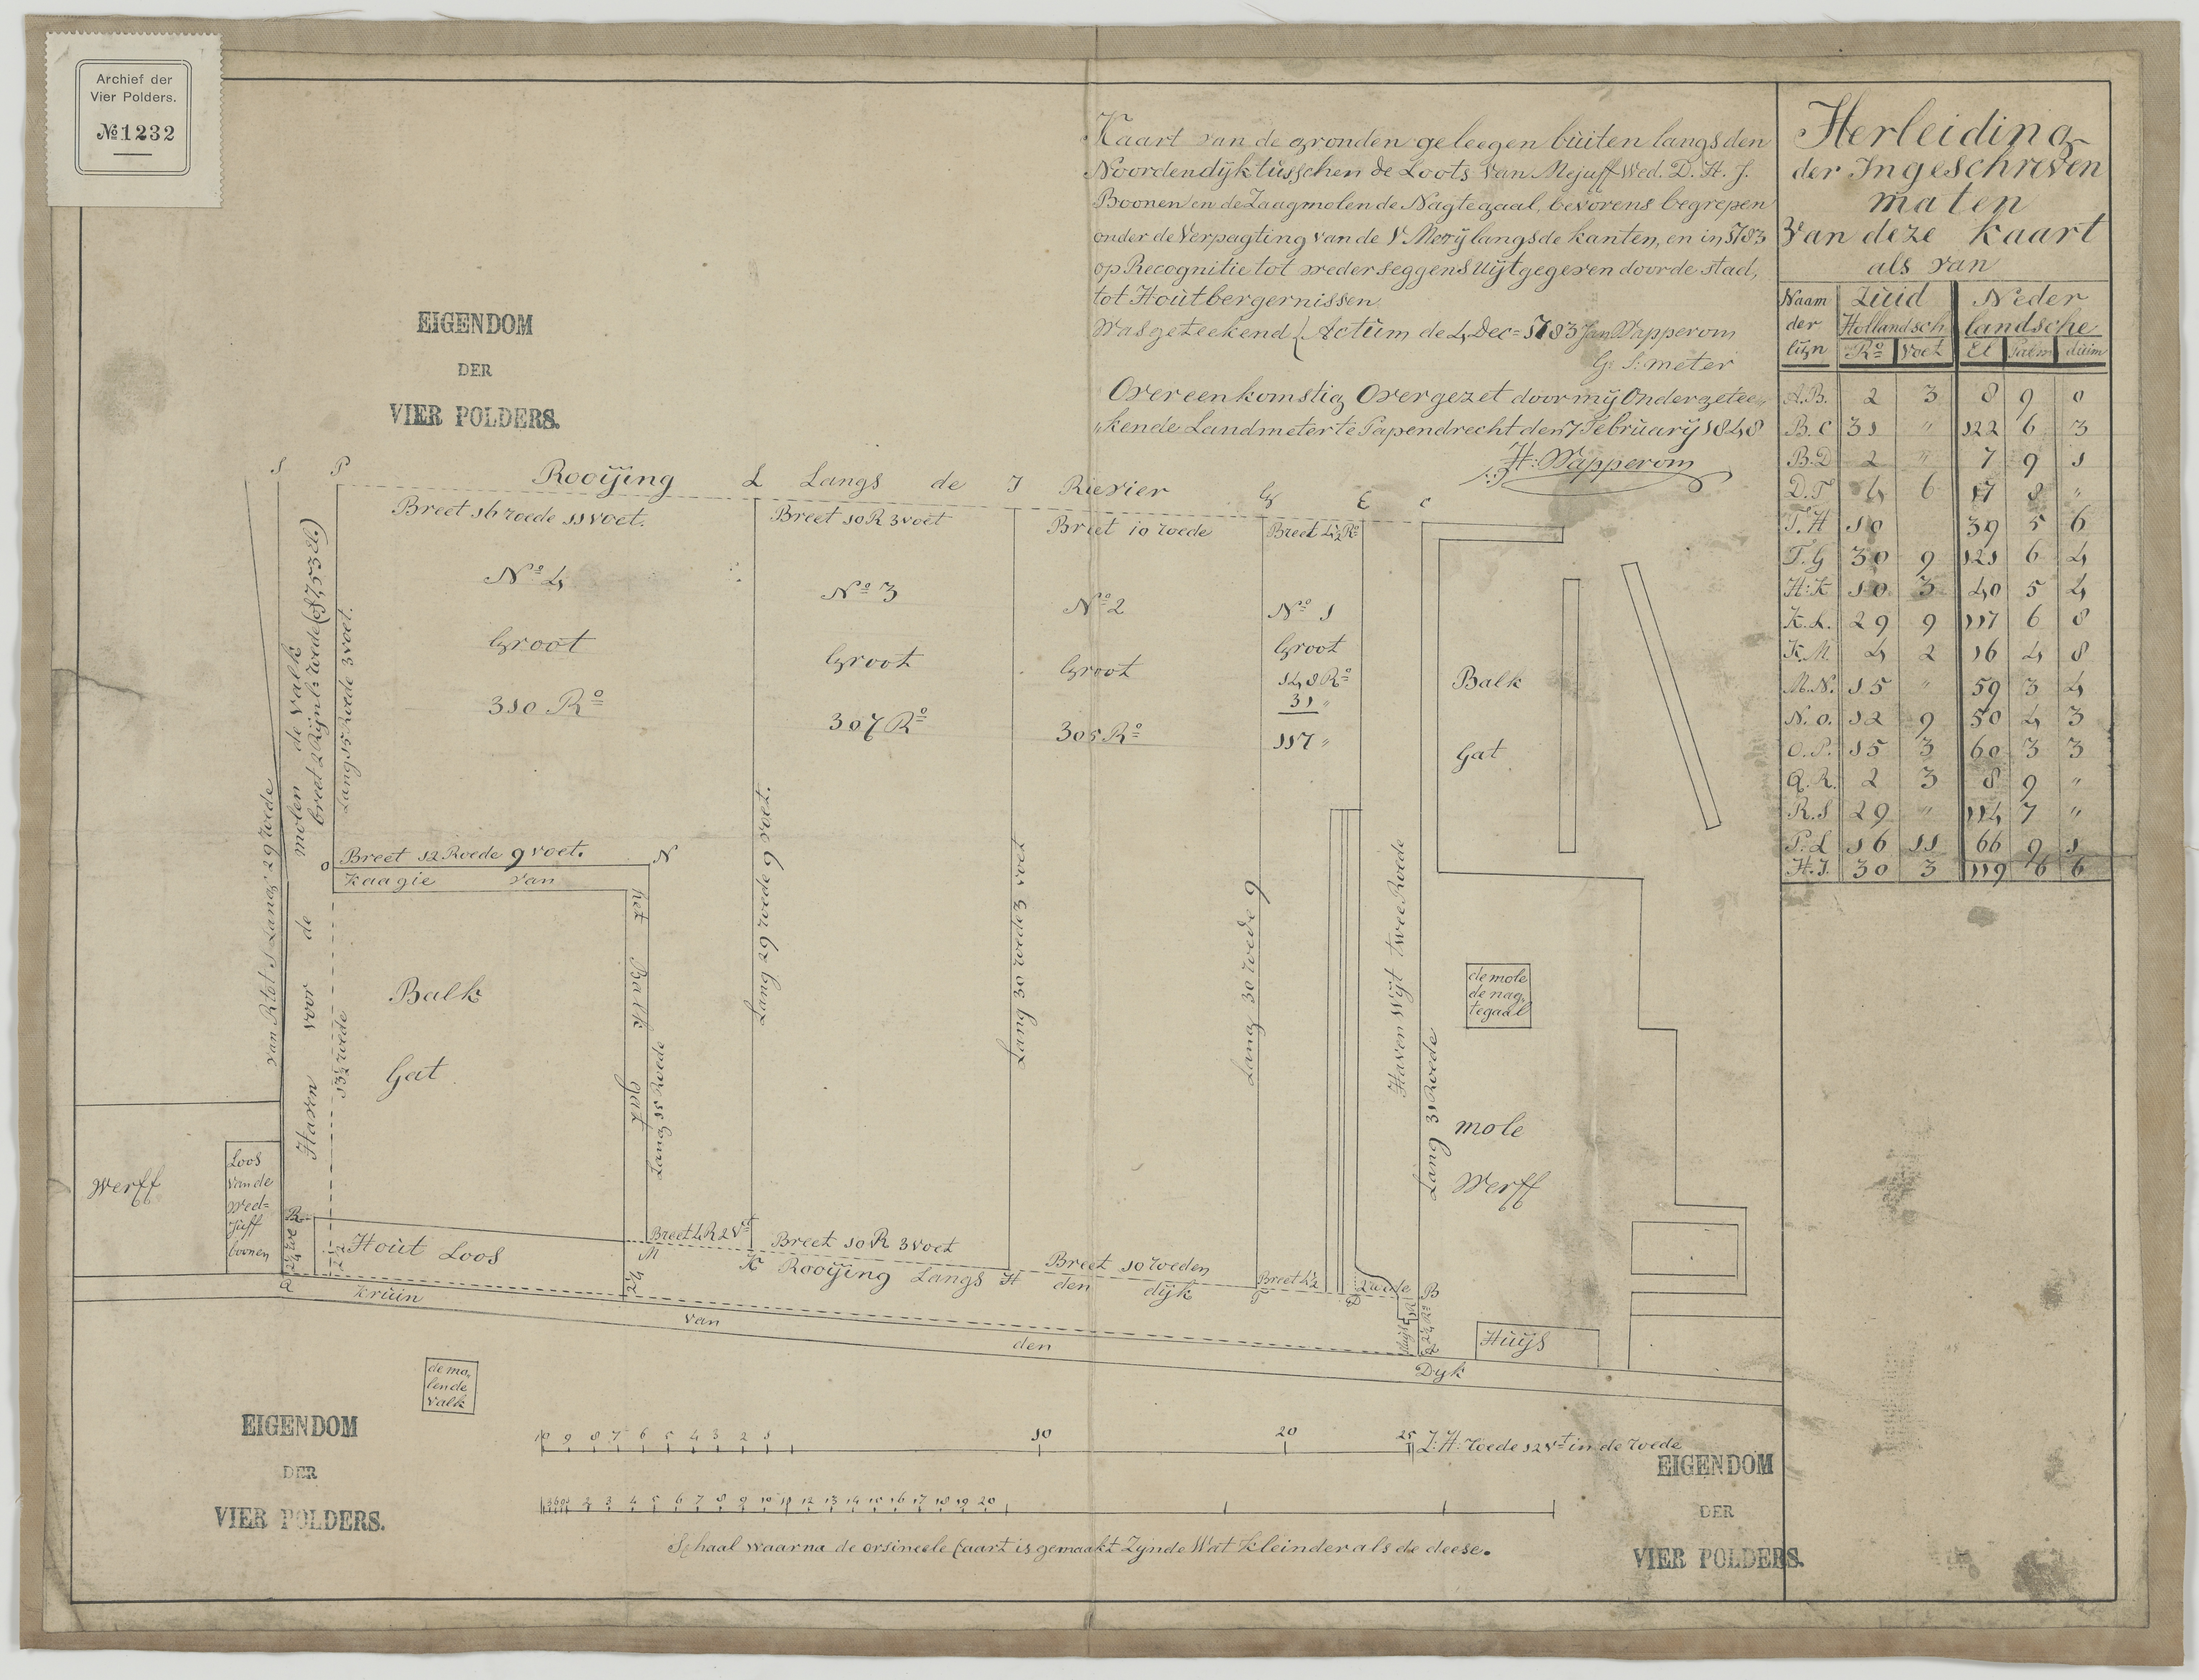 Archief der
Vier Polders.
№ 1232
Kaart van de gronden geleegen buiten langs den
Noordendijk tusschen de Loots van Mejuff Wed. D. H. J.
Boonen en de Zaagmolen de Nagtegaal, bevorens begrepen
onder de Verpagting van de langs de kanten, en in 1783
op Recognitie tot weder seggens Uijtgegeven door de stad,
tot Houtbergernissen
Was geteekend (Actum de 4 Dec= 1783 Jan Wapperom
Gs. S: meter
Overeenkomstig Overgezet door mij Ondergetee„
„kende Landmeter te Papendrecht den 7 February 1848
H: Wapperom
Herleiding
der Ingeschreven
maten
Van deze kaart
als van
Naam der lijn | Zuid Hollandsch | Neder landsche
Ro | Voet | El | Palm | duim
A.B. 2 3 8 9 0
B.C 31 " 122 6 3
B.D 2 " 7 9 1
D.F 4 6 17 8 "
F.H 10 39 5 6
F.G 30 9 121 6 4
H:K 10 3 40 5 4
K.L. 29 9 117 6 8
K.M. 4 2 16 4 8
M.N. 15 " 59 3 4
N.O. 12 9 50 4 3
O.P. 15 3 60 3 3
Q.R. 2 3 8 9 "
R.S 29 " 114 7 "
P.L 16 11 66 9 1
H.J. 30 3 119 6 6
EIGENDOM
DER
VIER POLDERS.
S P Rooijing L Langs de I Rievier G E C
Breet 16 roede 11 voet.
Breet 10 R 3 voet
Breet 10 roede
Breet 4½ Ro
No 4
Groot
310 Ro
No 3
Groot
307 Ro
No 2
Groot
305 Ro
No 1
Groot
148 Ro
31 "
117 "
Balk
Gat
van R tot S Lang 29 roede
Haven voor de molen de valk
breet 2 Rijnl: roede (8,7,53 el.)
Lang 15 Roede 3 voet.
O Breet 12 Roede 9 voet. N
Kaagie van
het Balk gat
Balk
Gat
13½ roede
Lang 15 Roede
Lang 29 roede 9 voet.
Lang 30 roede 3 voet
Lang 30 roede 9
Haven Wijt twee Roede
Lang 31 Roede
de mole
de nag,
tegaal
mole
Werff
Werff
Loos
van de
Wed=
Juff
boonen
R
Hout Loos
2¼
Breet 4 R 2 Vt
Breet 10 R 3 voet
Breet 10 roeden
Breet 4½
2 roede
M K Rooijing Langs H den dijk F D B
Q
Kruin van den Dyk
Huijs
de mo,
len de
Valk
10 9 8 7 6 5 4 3 2 1 10 20 25 Z: H: roede 12 vt in de roede
2 3 4 5 6 7 8 9 10 11 12 13 14 15 16 17 18 19 20
Schaal waarna de orsineele Caart is gemaakt Zijnde Wat Kleinder als de deese.
EIGENDOM
DER
VIER POLDERS.
EIGENDOM
DER
VIER POLDERS.